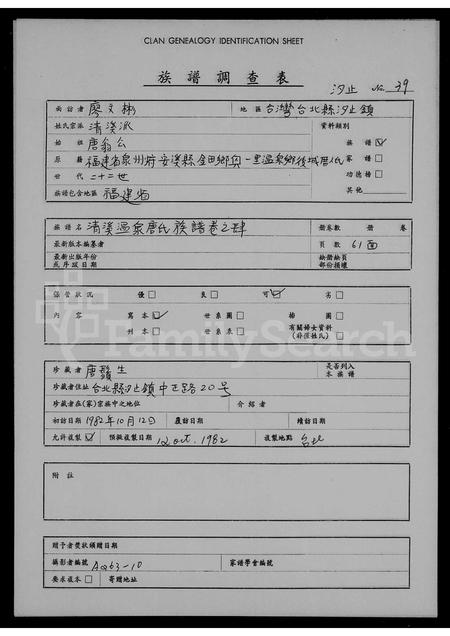 CLAN GENEALOGY IDENTIFICATION SHEET
族譜調查表
汐止 No. 39
面訪者 廖文彬 地區 台灣台北縣汐止鎮
姓氏宗派 清溪派 資料類別
始祖 唐翁公 族譜 ☑
原籍 福建省泉州府安溪縣金田鄉 一里溫泉鄉後城厝 家譜 □
世代 二十二世 功德榜 □
族譜包含地區 福建省 其他
族譜名 清溪溫泉唐氏族譜卷之肆 冊卷數 冊 卷
最新版本編纂者 頁數 61面
最新出版年份或序跋日期 缺冊缺頁部份損壞
保管狀況 優 □ 良 □ 可 ☑ 劣 □
內容 寫本 ☑ 世系圖 □ 排圖 □
刊本 □ 世系表 □ 有關婦女資料(非僅姓氏) □
珍藏者 唐鬚生 是否列入本族譜
珍藏者住址 台北縣汐止鎮中正路20号
珍藏者在(家)宗族中之地位 介紹者
初訪日期 1982年10月12日 覆訪日期 續訪日期
允許複製 ☑ 預擬複製日期 12 oct. 1982 複製地點 台北
附註
贈予者獎狀頒贈日期
攝影者編號 A263-10 家譜學會編號
要求複本 □ 寄贈地址
FamilySearch